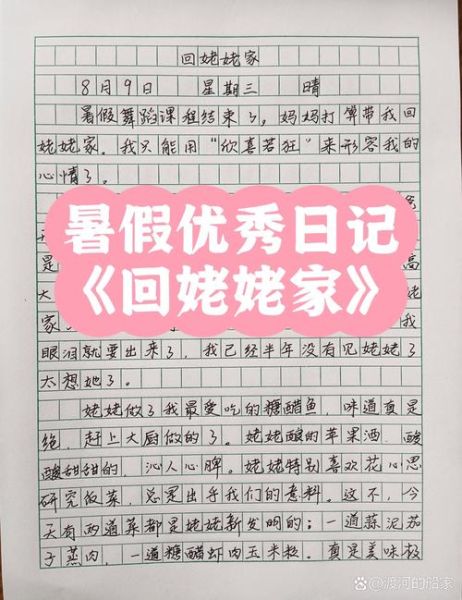 回姥姥家
8月9日 星期三 晴
暑假舞蹈课程结束了，妈妈打算带我回
姥姥家。我只能用“欣喜若狂”来形容我的
心情了。
暑假优秀日记
是 高
《回姥姥家》
大 姥
家 我
眼泪就要出来了，我已经半年没有见姥姥了
太想她了。
姥姥做了我最爱吃的糖醋鱼，味道真是
绝，赶上大厨做的了。姥姥酿的苹果酒，酸
酸甜甜的，沁人心脾。姥姥特别喜欢花心思
研究饭菜，总是出乎我们的意料。这不，今
天有两道菜都是姥姥新发明的；一道蒜泥茄
子蒸肉，一道糖醋虾肉玉米粒。真是美味极
@渡河的船家